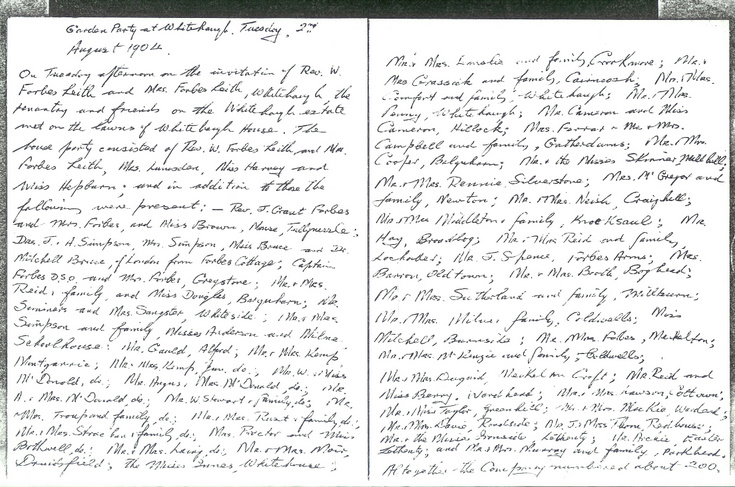 Garden Party at Whitehaugh, Tuesday, 2nd
August 1904.
On Tuesday afternoon on the invitation of Rev. W.
Forbes Leith and Mrs. Forbes Leith, Whitehaugh, the
tenantry and friends on the Whitehaugh estate
met on the lawns of Whitehaugh House. The
house party consisted of Rev. W. Forbes Leith and Mrs.
Forbes Leith, Mrs. Lumsden, Miss Harvey and
Miss Hepburn. and in addition to those the
following were present: — Rev. J. Grant Forbes
and Mrs. Forbes, and Miss Brown, Manse, Tullynessle;
Drs. J. & A. Simpson, Mrs. Simpson, Miss Bruce and Dr.
Mitchell Bruce, of London from Forbes Cottage; Captain
Forbes D.S.O. and Mrs. Forbes, Greystone; Mr. & Mrs.
Reid & family, and Miss Douglas, Balquharn; Mr.
Sammers and Mrs. Sangster, Whiteside; Mr. & Mrs.
Simpson and family, Misses Anderson and Milne
Schoolhouse; Mr. Gauld, Alford; Mr. & Mrs. Kemp
Montgarrie; Mr. & Mrs. Kemp, Jun. do; Mr. W. & Miss
McDonald, do; Mr. Angus & Mrs. McDonald do; Mr.
A. & Mrs. McDonald do; Mr. W. Stewart & family do; Mr.
& Mrs. Troup and family do; Mr. & Mrs. & family do;
Mr. & Mrs. Strachan & family do; Mrs. Proctor and Miss
Bothwell do; Mr. & Mrs. Laing, do; Mr. & Mrs. Moir,
Davidsfield; the Misses Innes, Whitehouse;
Mr. & Mrs. Emslie and family, Crookmore; Mr. &
Mrs Grassick and family, Cairncosh; Mr. & Mrs.
Comfort and family, Whitehaugh; Mr. & Mrs.
Penny, Whitehaugh; Mr. Cameron and Miss
Cameron, Hillock; Mrs. Farrar & Mr. & Mrs.
Campbell and family, ; Mr. & Mrs.
Cooper, Balquharn; Mr. & the Misses Skinner ;
Mr. & Mrs. Rennie, Silverstone; Mrs. McGregor and
family, Newton; Mr. & Mrs. Neish, Craighill;
Mr. & Mrs Middleton & family, Knocksaul; Mr.
Hay, Broadbog; Mr. & Mrs Reid and family,
; Mr. J. Spence, Forbes Arms; Mrs.
Barron, Oldtown; Mr. & Mrs. Booth, Boghead;
Mr & Mrs. Sutherland and family, Millburn;
Mr. & Mrs. Milne & family, Coldwells; Miss
Mitchell, Burnside; Mr. & Mrs Forbes, ;
Mr. & Mrs. McKenzie and family, Coldwells;
Mr. & Mrs. Duguid, Croft; Mr. Reid and
Miss Benny, Woodhead; Mr. & Mrs. Lawson, ;
Mr. & Miss Taylor, Greenhill; Mr. & Mrs. Mackie, ;
Mr. & Mrs. , Roadside; Mr. J. & Mrs Thom, Redhouse;
Mr. & the Misses Ironside, ; Mr. , Easter
; and Mr. & Mrs. Murray and family, Parkhead.
Altogether the Company numbered about 200.